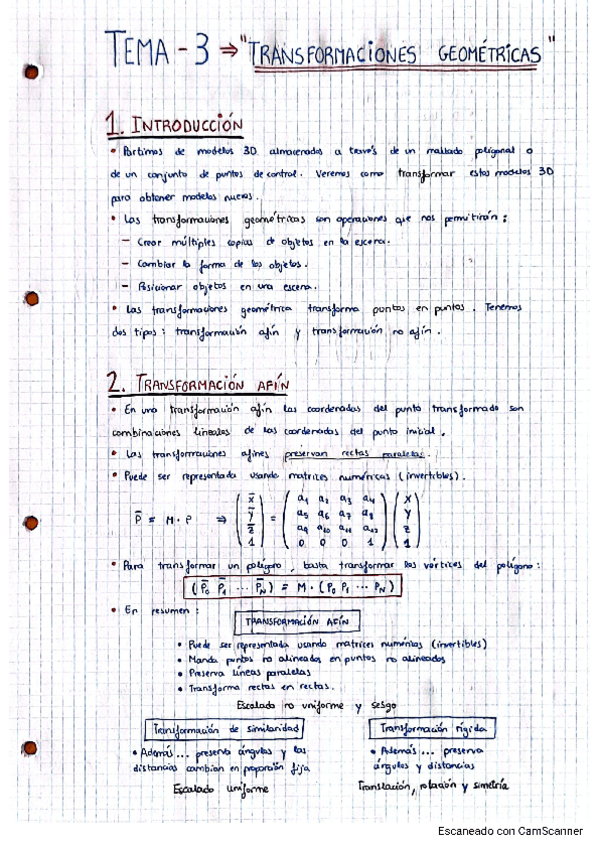 TEMA - 3 ⇒ "TRANSFORMACIONES GEOMÉTRICAS"
1. INTRODUCCIÓN
• Partimos de modelos 3D almacenados a través de un mallado poligonal o
de un conjunto de puntos de control. Veremos como transformar estos modelos 3D
para obtener modelos nuevos.
• Las transformaciones geométricas son operaciones que nos permitirán:
- Crear múltiples copias de objetos en la escena.
- Cambiar la forma de los objetos.
- Posicionar objetos en una escena.
• Las transformaciones geométrica transforma puntos en puntos. Tenemos
dos tipos: transformación afín y transformación no afín.
2. TRANSFORMACIÓN AFÍN
• En una transformación afín las coordenadas del punto transformado son
combinaciones lineales de las coordenadas del punto inicial.
• Las transformaciones afines preservan rectas paralelas.
• Puede ser representada usando matrices numéricas (invertibles).
P̄ = M · P ⇒ (x̄ ȳ z̄ 1) = (a1 a2 a3 a4
a5 a6 a7 a8
a9 a10 a11 a12
0 0 0 1) (x y z 1)
• Para transformar un polígono, basta transformar los vértices del polígono:
(P̄0 P̄1 ... P̄N) = M · (P0 P1 ... PN)
• En resumen:
TRANSFORMACIÓN AFÍN
• Puede ser representada usando matrices numéricas (invertibles)
• Manda puntos no alineados en puntos no alineados
• Preserva líneas paralelas
• Transforma rectas en rectas.
Escalado no uniforme y sesgo
Transformación de similaridad
• Además... preserva ángulos y las
distancias cambian en proporción fija
Escalado uniforme
Transformación rígida
• Además... preserva
ángulos y distancias
Translación, rotación y simetría
Escaneado con CamScanner